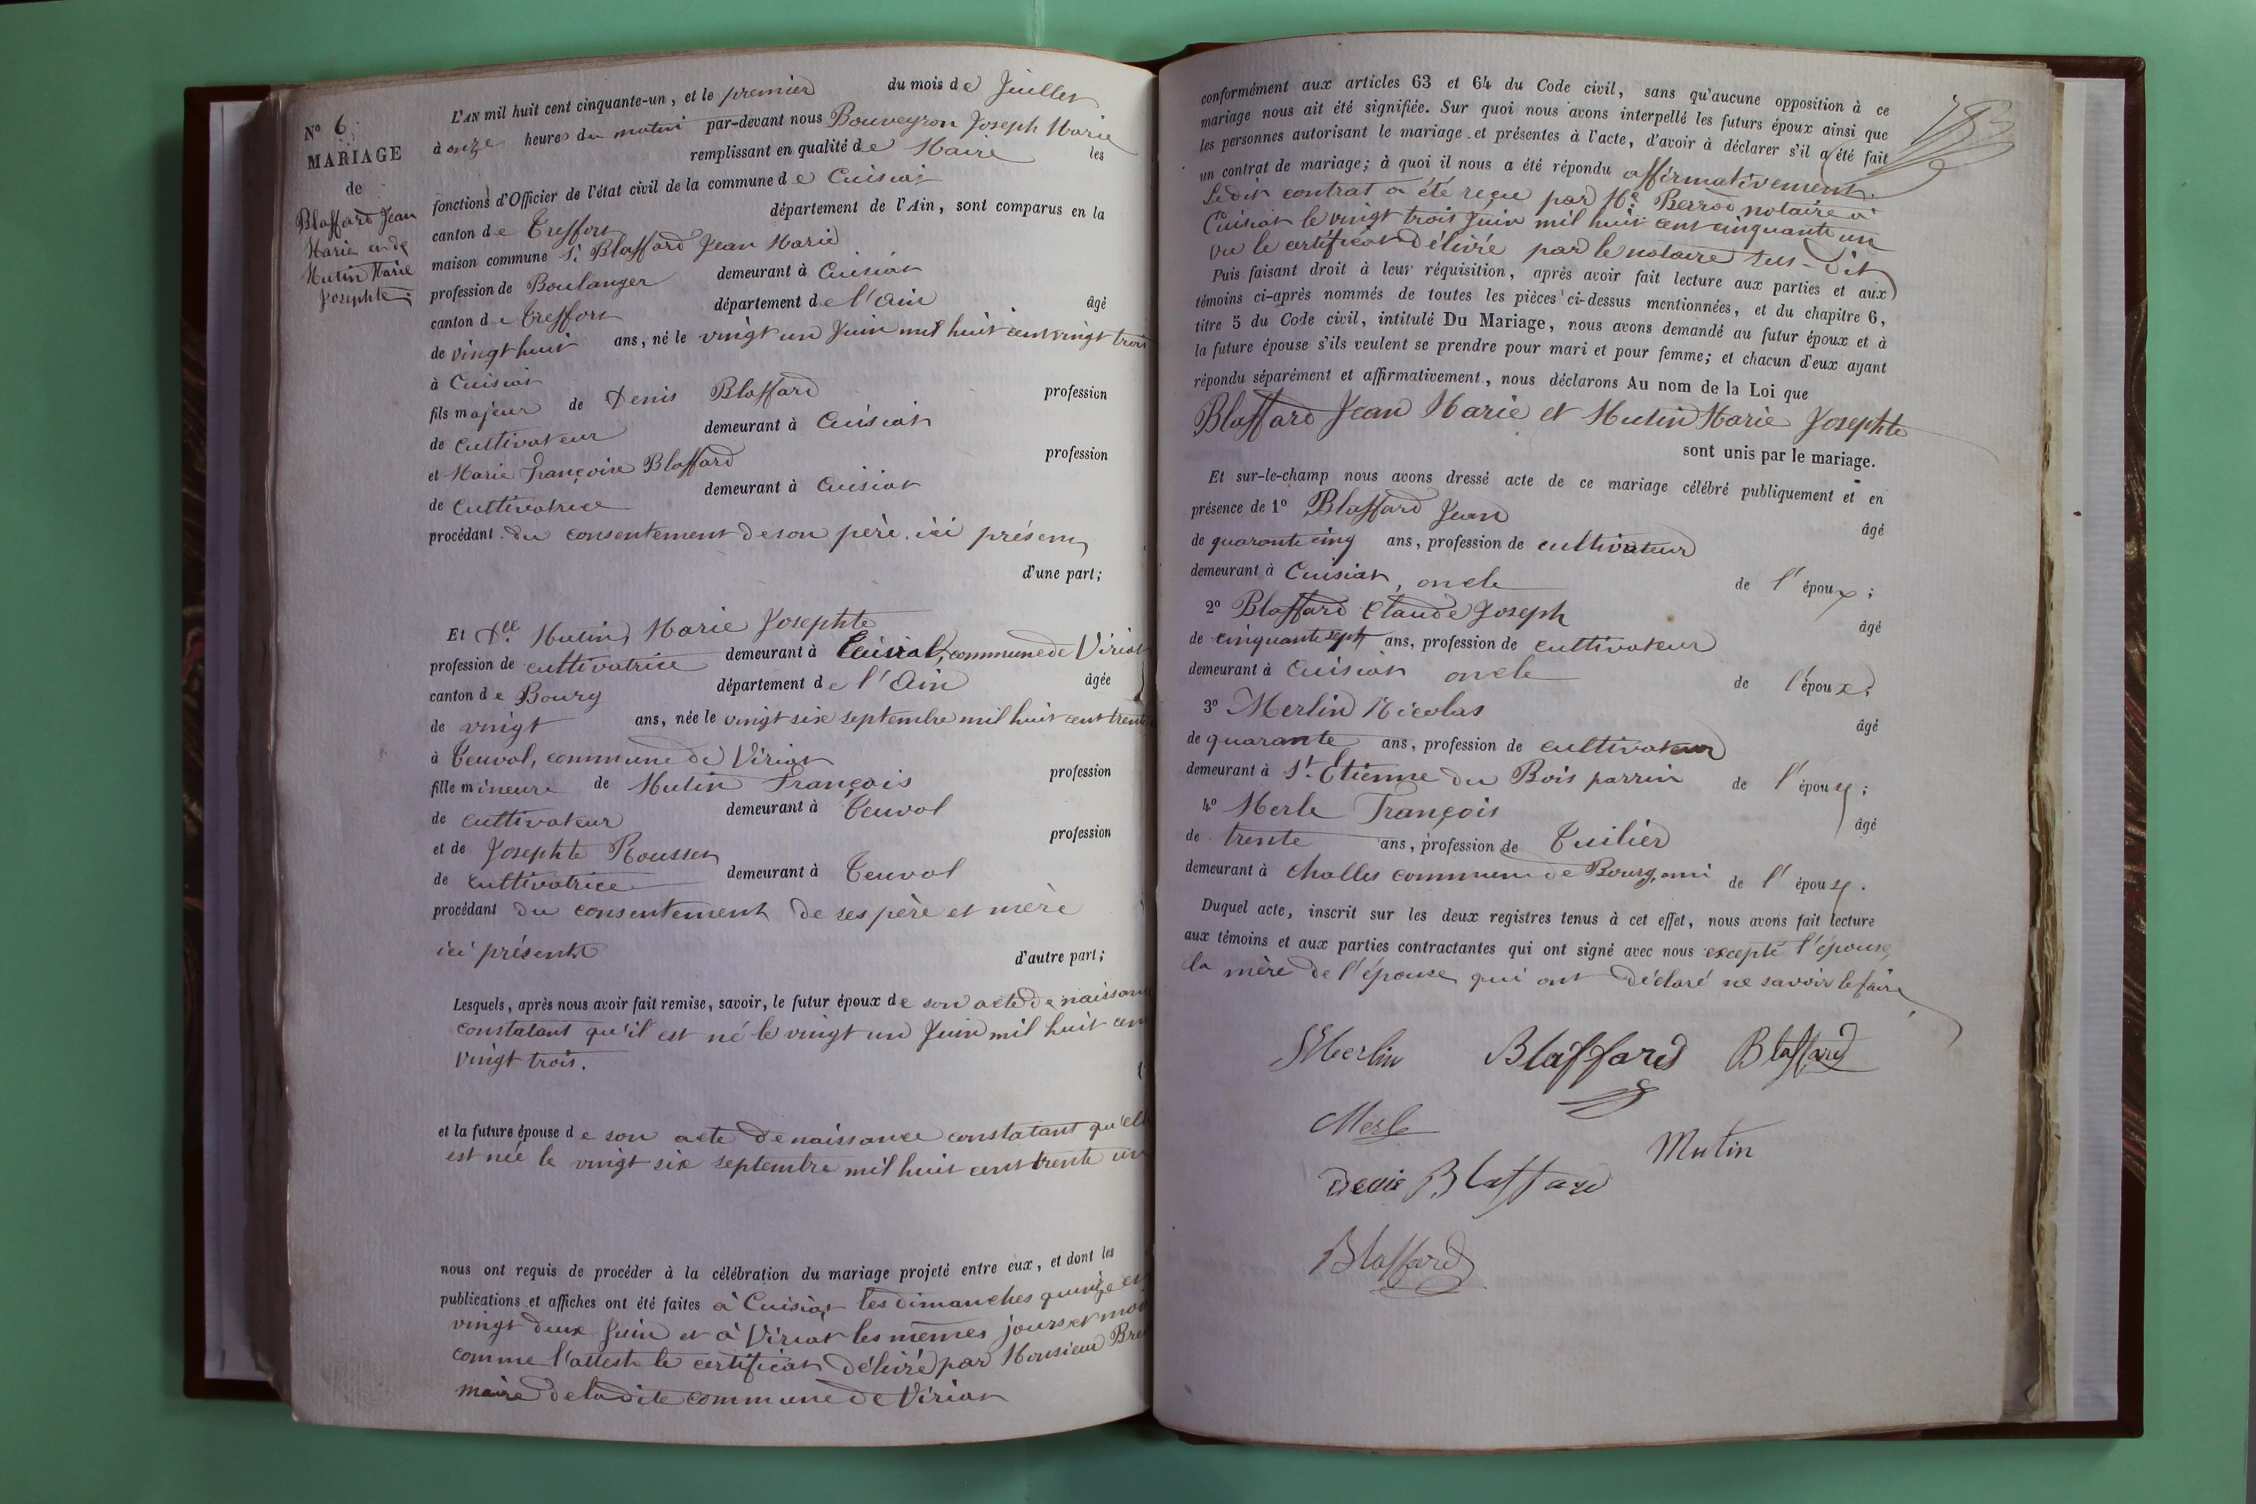 N.º 6.
MARIAGE
de
Blaffard Jean
Marie et de
Mutin Marie
Josephte
L'AN mil huit cent cinquante-un, et le premier du mois de Juillet
à onze heures du matin par-devant nous Bouveyron Joseph Marie
remplissant en qualité de Maire les
fonctions d'Officier de l'état civil de la commune de Cuisiat
canton de Treffort département de l'Ain, sont comparus en la
maison commune Sr. Blaffard Jean Marie
profession de Boulanger demeurant à Cuisiat
canton de Treffort département de l'Ain âgé
de vingt huit ans, né le vingt un Juin mil huit cent vingt trois
à Cuisiat
fils majeur de Denis Blaffard profession
de cultivateur demeurant à Cuisiat
et Marie Françoise Blaffard profession
de cultivatrice demeurant à Cuisiat
procédant du consentement de son père ici présent
d'une part;
Et Dlle. Mutin Marie Josephte
profession de cultivatrice demeurant à commune de Viriat
canton de Bourg département de l'Ain âgée
de vingt ans, née le vingt six septembre mil huit cent trente
à Teuvol, commune de Viriat
fille mineure de Mutin François profession
de cultivateur demeurant à Teuvol
et de Josephte Rousset profession
de cultivatrice demeurant à Teuvol
procédant du consentement de ses père et mère
ici présents d'autre part;
Lesquels, après nous avoir fait remise, savoir, le futur époux de son acte de naissance
constatant qu'il est né le vingt un Juin mil huit cent
vingt trois.
et la future épouse de son acte de naissance constatant qu'elle
est née le vingt six septembre mil huit cent trente un
nous ont requis de procéder à la célébration du mariage projeté entre eux, et dont les
publications et affiches ont été faites à Cuisiat les dimanches quinze et
vingt deux Juin et à Viriat les mêmes jours et mois
comme l'atteste le certificat délivré par Monsieur
maire de la dite commune de Viriat
conformément aux articles 63 et 64 du Code civil, sans qu'aucune opposition à ce
mariage nous ait été signifiée. Sur quoi nous avons interpellé les futurs époux ainsi que
les personnes autorisant le mariage et présentes à l'acte, d'avoir à déclarer s'il a été fait
un contrat de mariage; à quoi il nous a été répondu affirmativement.
Ledit contrat a été reçu par Me. Berrod notaire à
Cuisiat le vingt trois Juin mil huit cent cinquante un
vu le certificat délivré par le notaire sus-dit
Puis faisant droit à leur réquisition, après avoir fait lecture aux parties et aux
témoins ci-après nommés de toutes les pièces ci-dessus mentionnées, et du chapitre 6,
titre 5 du Code civil, intitulé Du Mariage, nous avons demandé au futur époux et à
la future épouse s'ils veulent se prendre pour mari et pour femme; et chacun d'eux ayant
répondu séparément et affirmativement, nous déclarons Au nom de la Loi que
Blaffard Jean Marie et Mutin Marie Josephte
sont unis par le mariage.
Et sur-le-champ nous avons dressé acte de ce mariage célébré publiquement et en
présence de 1º Blaffard Jean âgé
de quarante cinq ans, profession de cultivateur
demeurant à Cuisiat, oncle de l'époux;
2º Blaffard Claude Joseph âgé
de cinquante sept ans, profession de cultivateur
demeurant à Cuisiat oncle de l'époux;
3º Merlin Nicolas âgé
de quarante ans, profession de cultivateur
demeurant à St. Etienne du Bois parrin de l'épouse;
4º Merle François âgé
de trente ans, profession de Tuilier
demeurant à Challes commune de Bourg, ami de l'épouse.
Duquel acte, inscrit sur les deux registres tenus à cet effet, nous avons fait lecture
aux témoins et aux parties contractantes qui ont signé avec nous excepté l'épouse,
la mère de l'épouse qui ont déclaré ne savoir le faire
Merlin Blaffard Blaffard
Merle
Mutin
Denis Blaffard
Blaffard